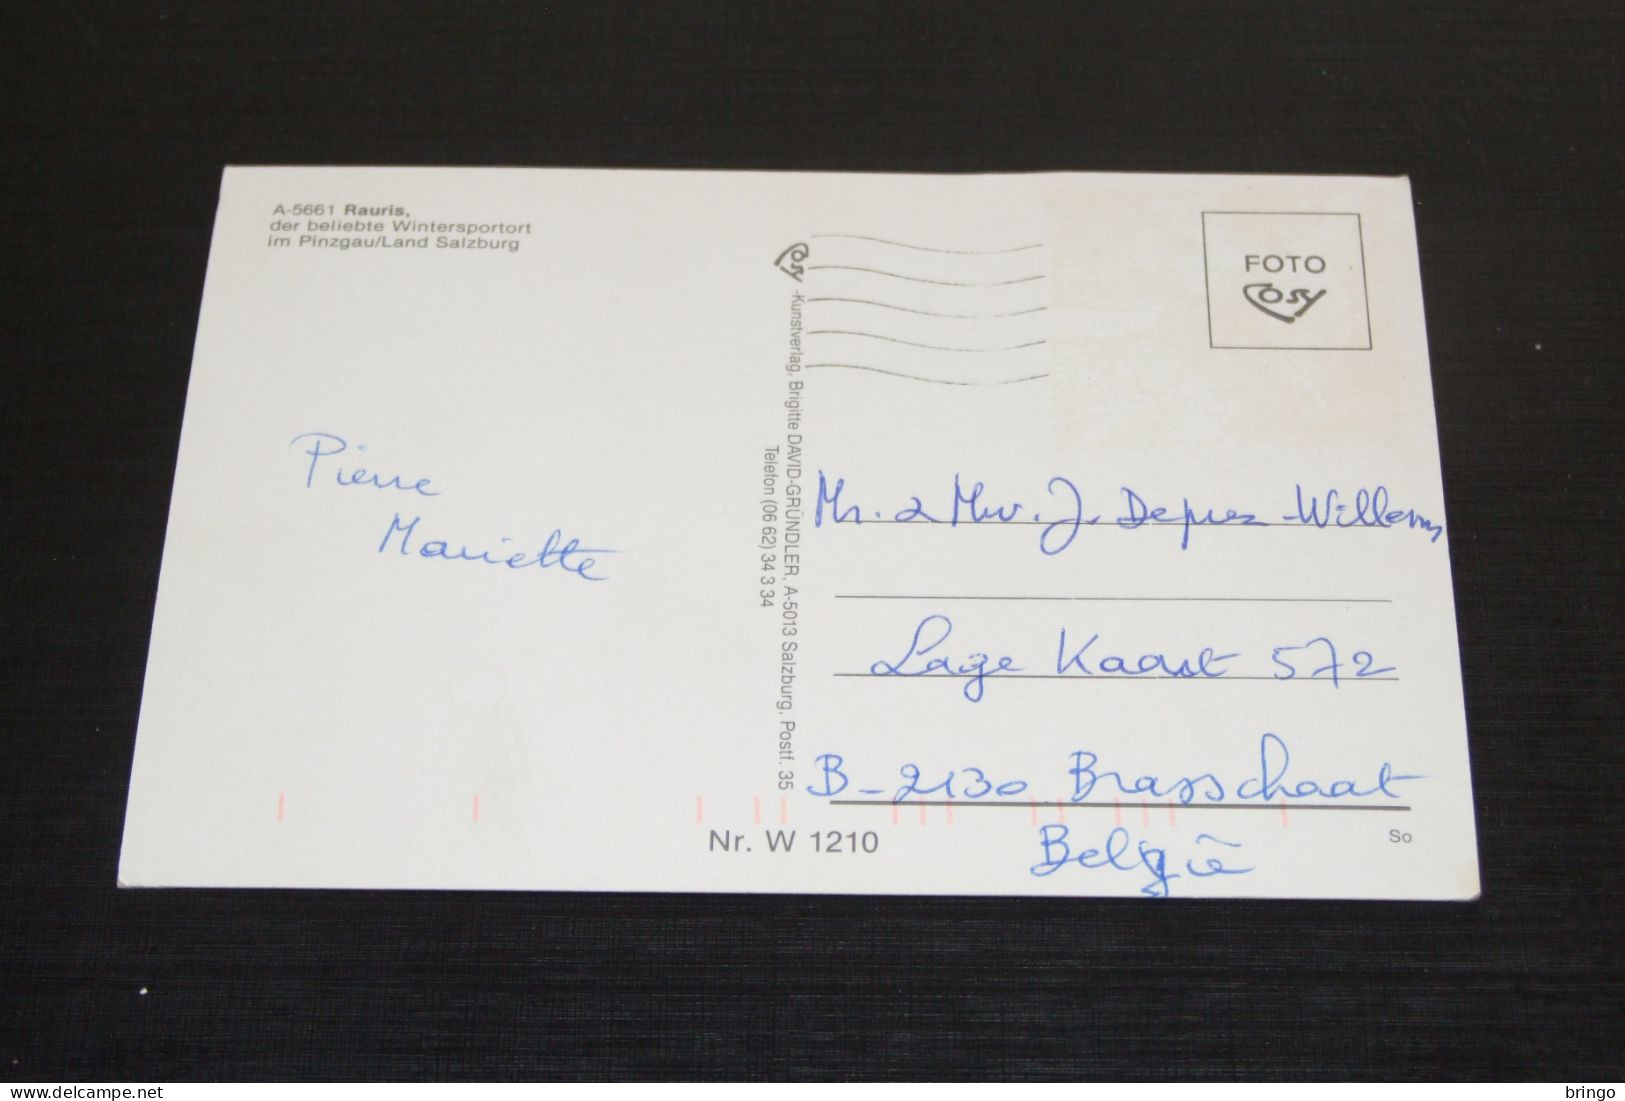 A-5661 Rauris,
der beliebte Wintersportort
im Pinzgau/Land Salzburg
Cosy -Kunstverlag, Brigitte DAVID-GRÜNDLER, A-5013 Salzburg, Postf. 35
Telefon (06 62) 34 3 34
FOTO
Cosy
Pierre
Mariette
Mr. & Mw. J. Deprez-Willems
Lage Kaart 572
B-2130 Brasschaat
België
Nr. W 1210
So
bringo